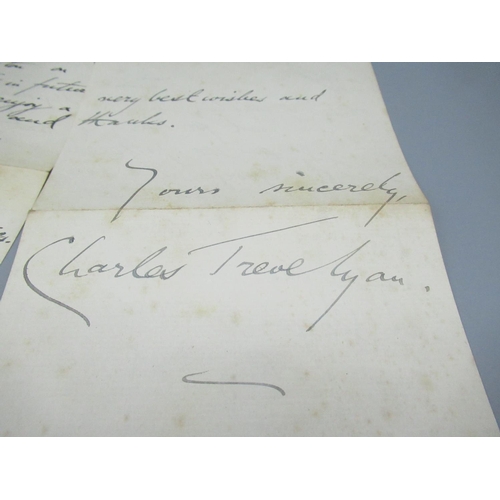 very best wishes and
and thanks.
Yours sincerely,
Charles Trevelyan.